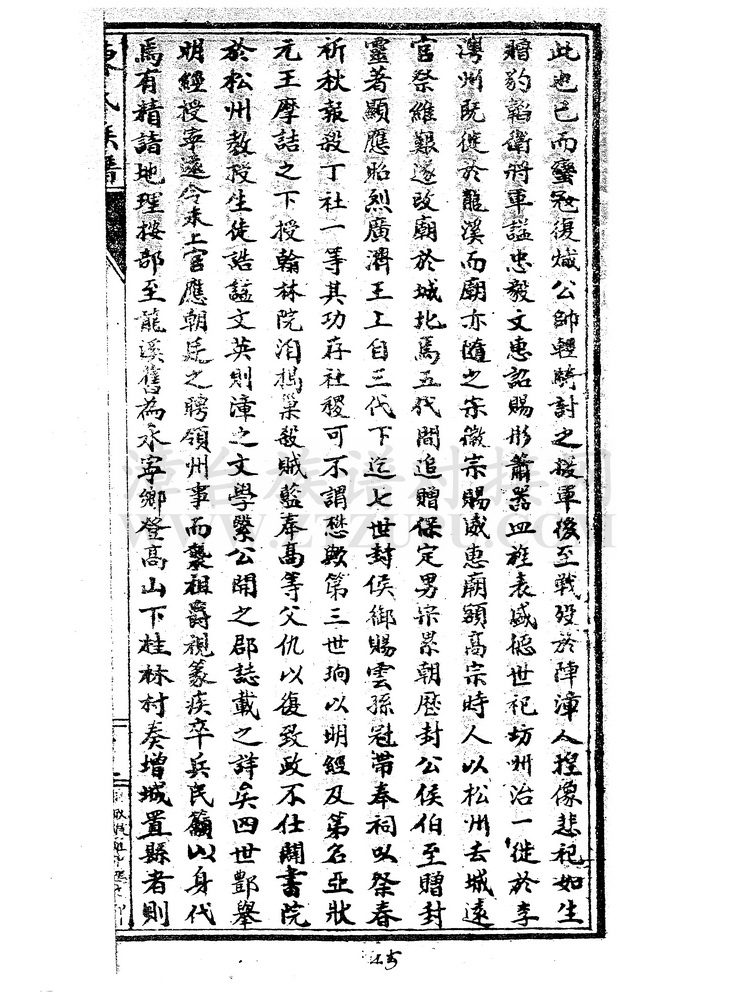 此也已而蠻寇復熾公帥輕騎討之援軍後至戰歿於陣漳人揑像悲祀如生
贈豹韜衛將軍謚忠毅文惠詔賜彤簫器皿旌表盛德世祀坊州治一徙於李
灣州既徙於龍溪而廟亦隨之宗徽宗賜威惠廟額高宗時人以松州去城遠
官祭維艱遂改廟於城北焉五代間追贈保定男宗累朝歷封公侯伯至贈封
靈著顯應昭烈廣濟王上自三代下迄七世封侯御賜雲孫冠帶奉祠以祭春
祈秋報殺丁社一等其功存社稷可不謂懋歟第三世珦以明經及第名亞狀
元王摩詰之下授翰林院洎搗巢殺賊藍奉高等父仇以復致政不仕闢書院
於松州教授生徒誥謚文英則漳之文學繫公開之郡誌載之詳矣四世酆舉
明經授寧遠令未上官應朝廷之聘領州事而襲祖爵視篆疾卒兵民籲以身代
焉有精諳地理按部至龍溪舊為水寧鄉登高山下桂林村奏增城置縣者則
陳氏族譜
漳台族譜對接網
WWW.ZTZUPU.COM